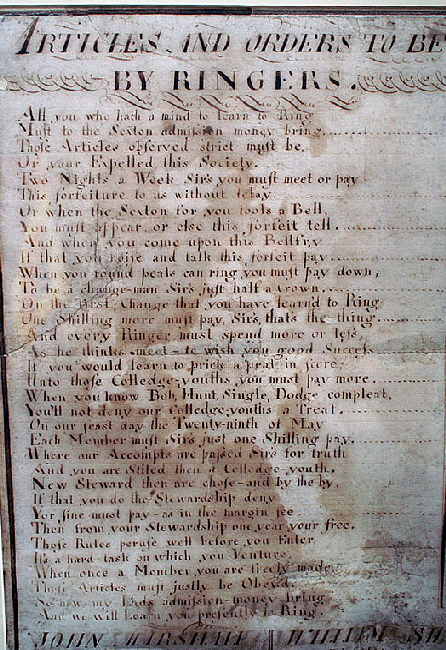 ARTICLES AND ORDERS TO BE
BY RINGERS.
All you who hath a mind to learn to Ring
Must to the Sexton admission money bring
Those Articles observed strict must be
Or your Expelled this Society.
Two Nights a Week Sirs you must meet or pay
This forfeiture to us without delay
Or when the Sexton for you tools a Bell,
You must appear or else this forfeit tell.
And when you come upon this Bellfry
If that you and talk this forfeit pay
When you round peals can ring you must pay down,
To be a change-man Sirs just half a Crown
On the first Change that you have learn'd to Ring
One Shilling more must pay, Sirs, thats the thing.
And every Ringer must spend more or less,
As he thinks meet to wish you good Success
If you would learn to prick a peal in score
Unto those Colledge-youths you must pay more.
When you know Bob, Hunt, Single, Dodge compleat,
You'll not deny our Colledge-youths a Treat.
On our feast day the Twenty-ninth of May
Each Member must Sirs just one Shilling pay.
Where our Accompts are passed Sirs for truth
And you are Stiled then a Colledge-youth.
New Steward then are chose and by the by
If that you do the Stewardship deny
Yor fine must pay as in the margin see
Then from your Stewardship one year your free.
Those Rules peruse well before you Enter
It's a hard task on which you Venture
When once a Member you are freely made
Those Articles must justly be Obey'd
So now my Lads admission money bring
And we will Learn you presently to Ring
JOHN MARSHALL WILLIAM